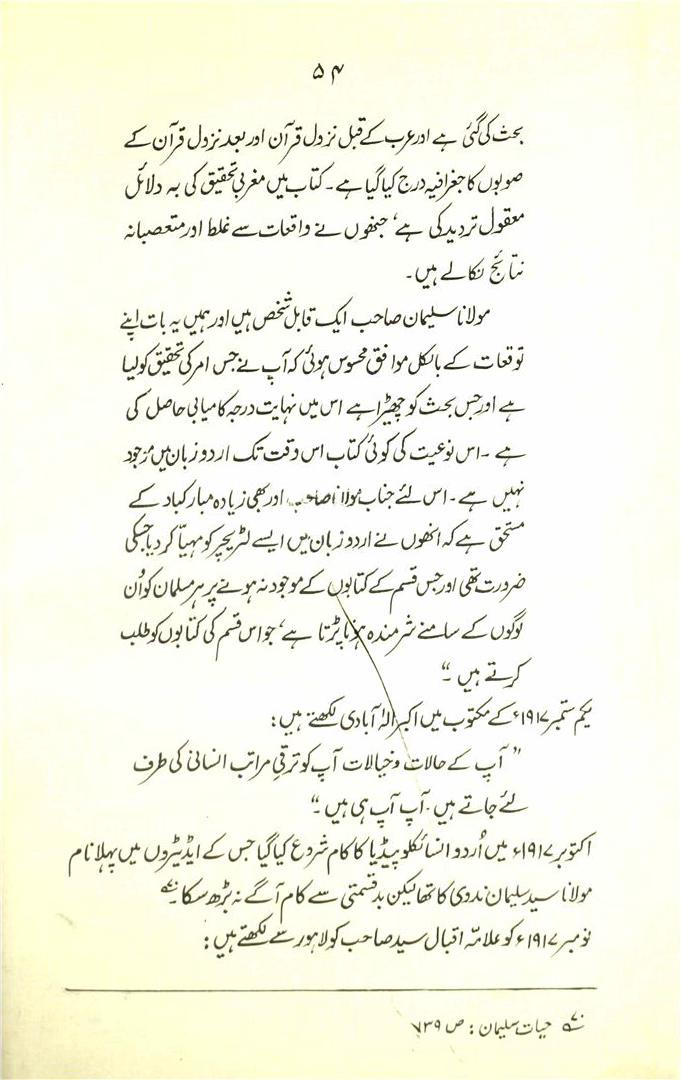 ۵۴
بحث کی گئی ہے اور عرب کے قبل نزول قرآن اور بعد نزول قرآن کے
صوبوں کا جغرافیہ درج کیا گیا ہے۔ کتاب میں مغربی تحقیق کی بہ دلائل
معقول تردید کی ہے، جنھوں نے واقعات سے غلط اور متعصبانہ
نتائج نکالے ہیں۔
مولانا سلیمان صاحب ایک قابل شخص ہیں اور ہمیں یہ بات اپنے
توقعات کے بالکل موافق محسوس ہوئی کہ آپ نے جس امر کی تحقیق کو لیا
ہے اور جس بحث کو چھیڑا ہے اس میں نہایت درجہ کامیابی حاصل کی
ہے۔ اس نوعیت کی کوئی کتاب اس وقت تک اردو زبان میں موجود
نہیں ہے۔ اس لئے جناب مولانا صاحب اور بھی زیادہ مبارکباد کے
مستحق ہے کہ انھوں نے اردو زبان میں ایسے لٹریچر کو مہیّا کر دیا جسکی
ضرورت تھی اور جس قسم کے کتابوں کے موجود نہ ہونے پر ہر مسلمان کو اُن
لوگوں کے سامنے شرمندہ ہونا پڑتا ہے، جو اس قسم کی کتابوں کو طلب
کرتے ہیں۔“
یکم ستمبر ۱۹۱۷ء کے مکتوب میں اکبر الٰہ آبادی لکھتے ہیں:
”آپ کے حالات و خیالات آپ کو ترقیِ مراتب انسانی کی طرف
لئے جاتے ہیں۔ آپ آپ ہی ہیں۔“
اکتوبر ۱۹۱۷ء میں اُردو انسائکلوپیڈیا کا کام شروع کیا گیا جس کے ایڈیٹروں میں پہلا نام
مولانا سید سلیمان ندوی کا تھا لیکن بدقسمتی سے کام آگے نہ بڑھ سکا۔
نومبر ۱۹۱۷ء کو علامّہ اقبال سید صاحب کو لاہور سے لکھتے ہیں:
حیات سلیمان: ص ۷۳۹